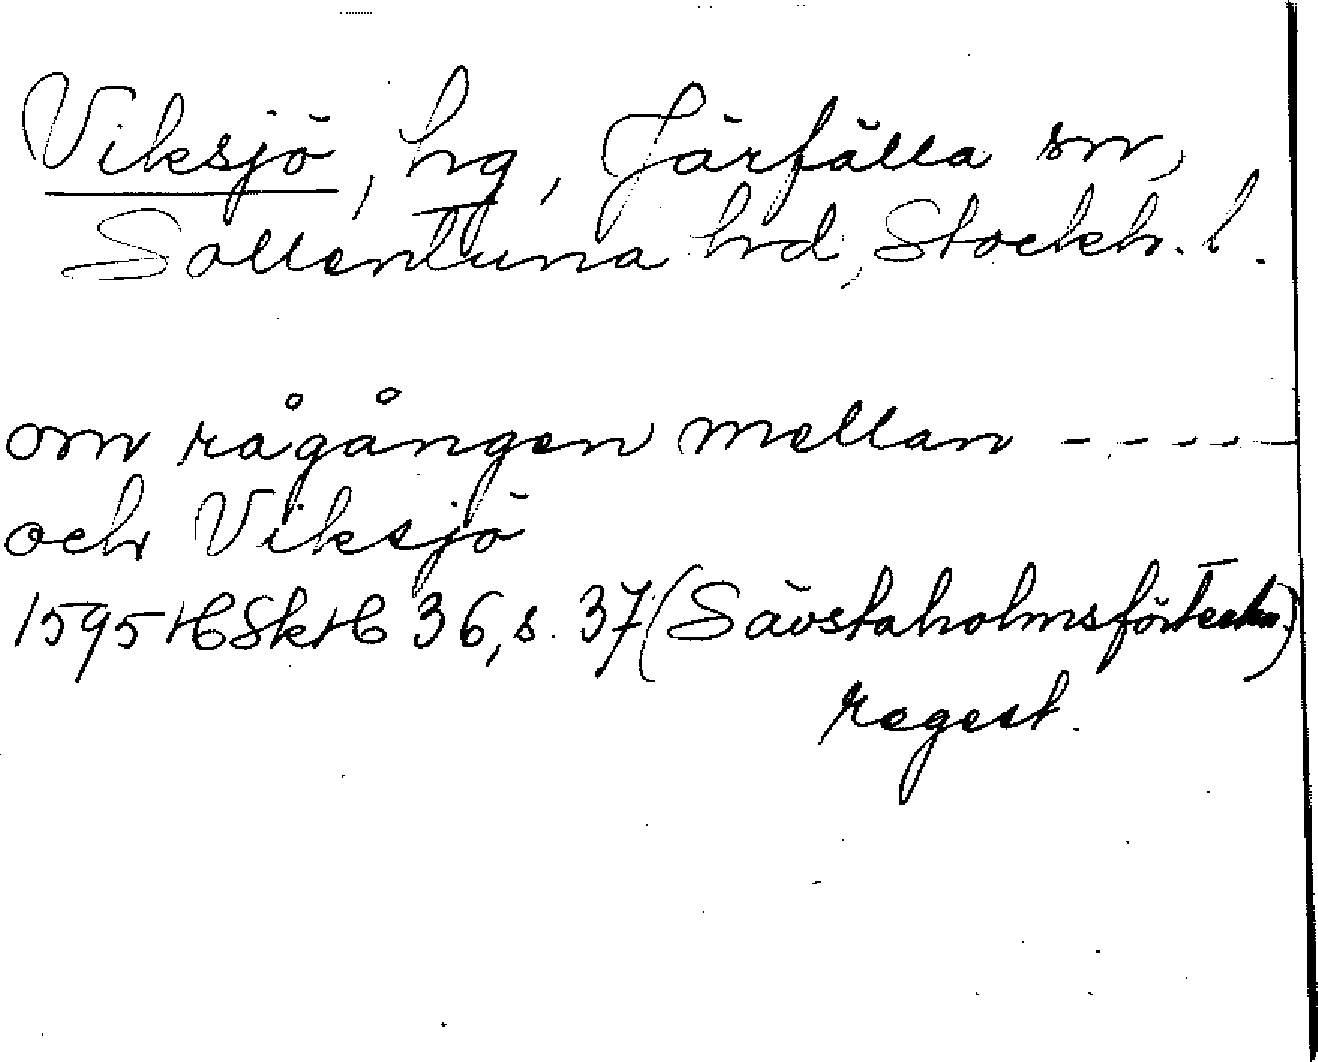 Viksjö, hg, Järfälla sn,
Sollentuna hd, Stockh. l.
om rågången mellan - - - - -
och Viksjö
1595 HSkH 36, s. 37 (Sävstaholmsförteckn.)
regest.